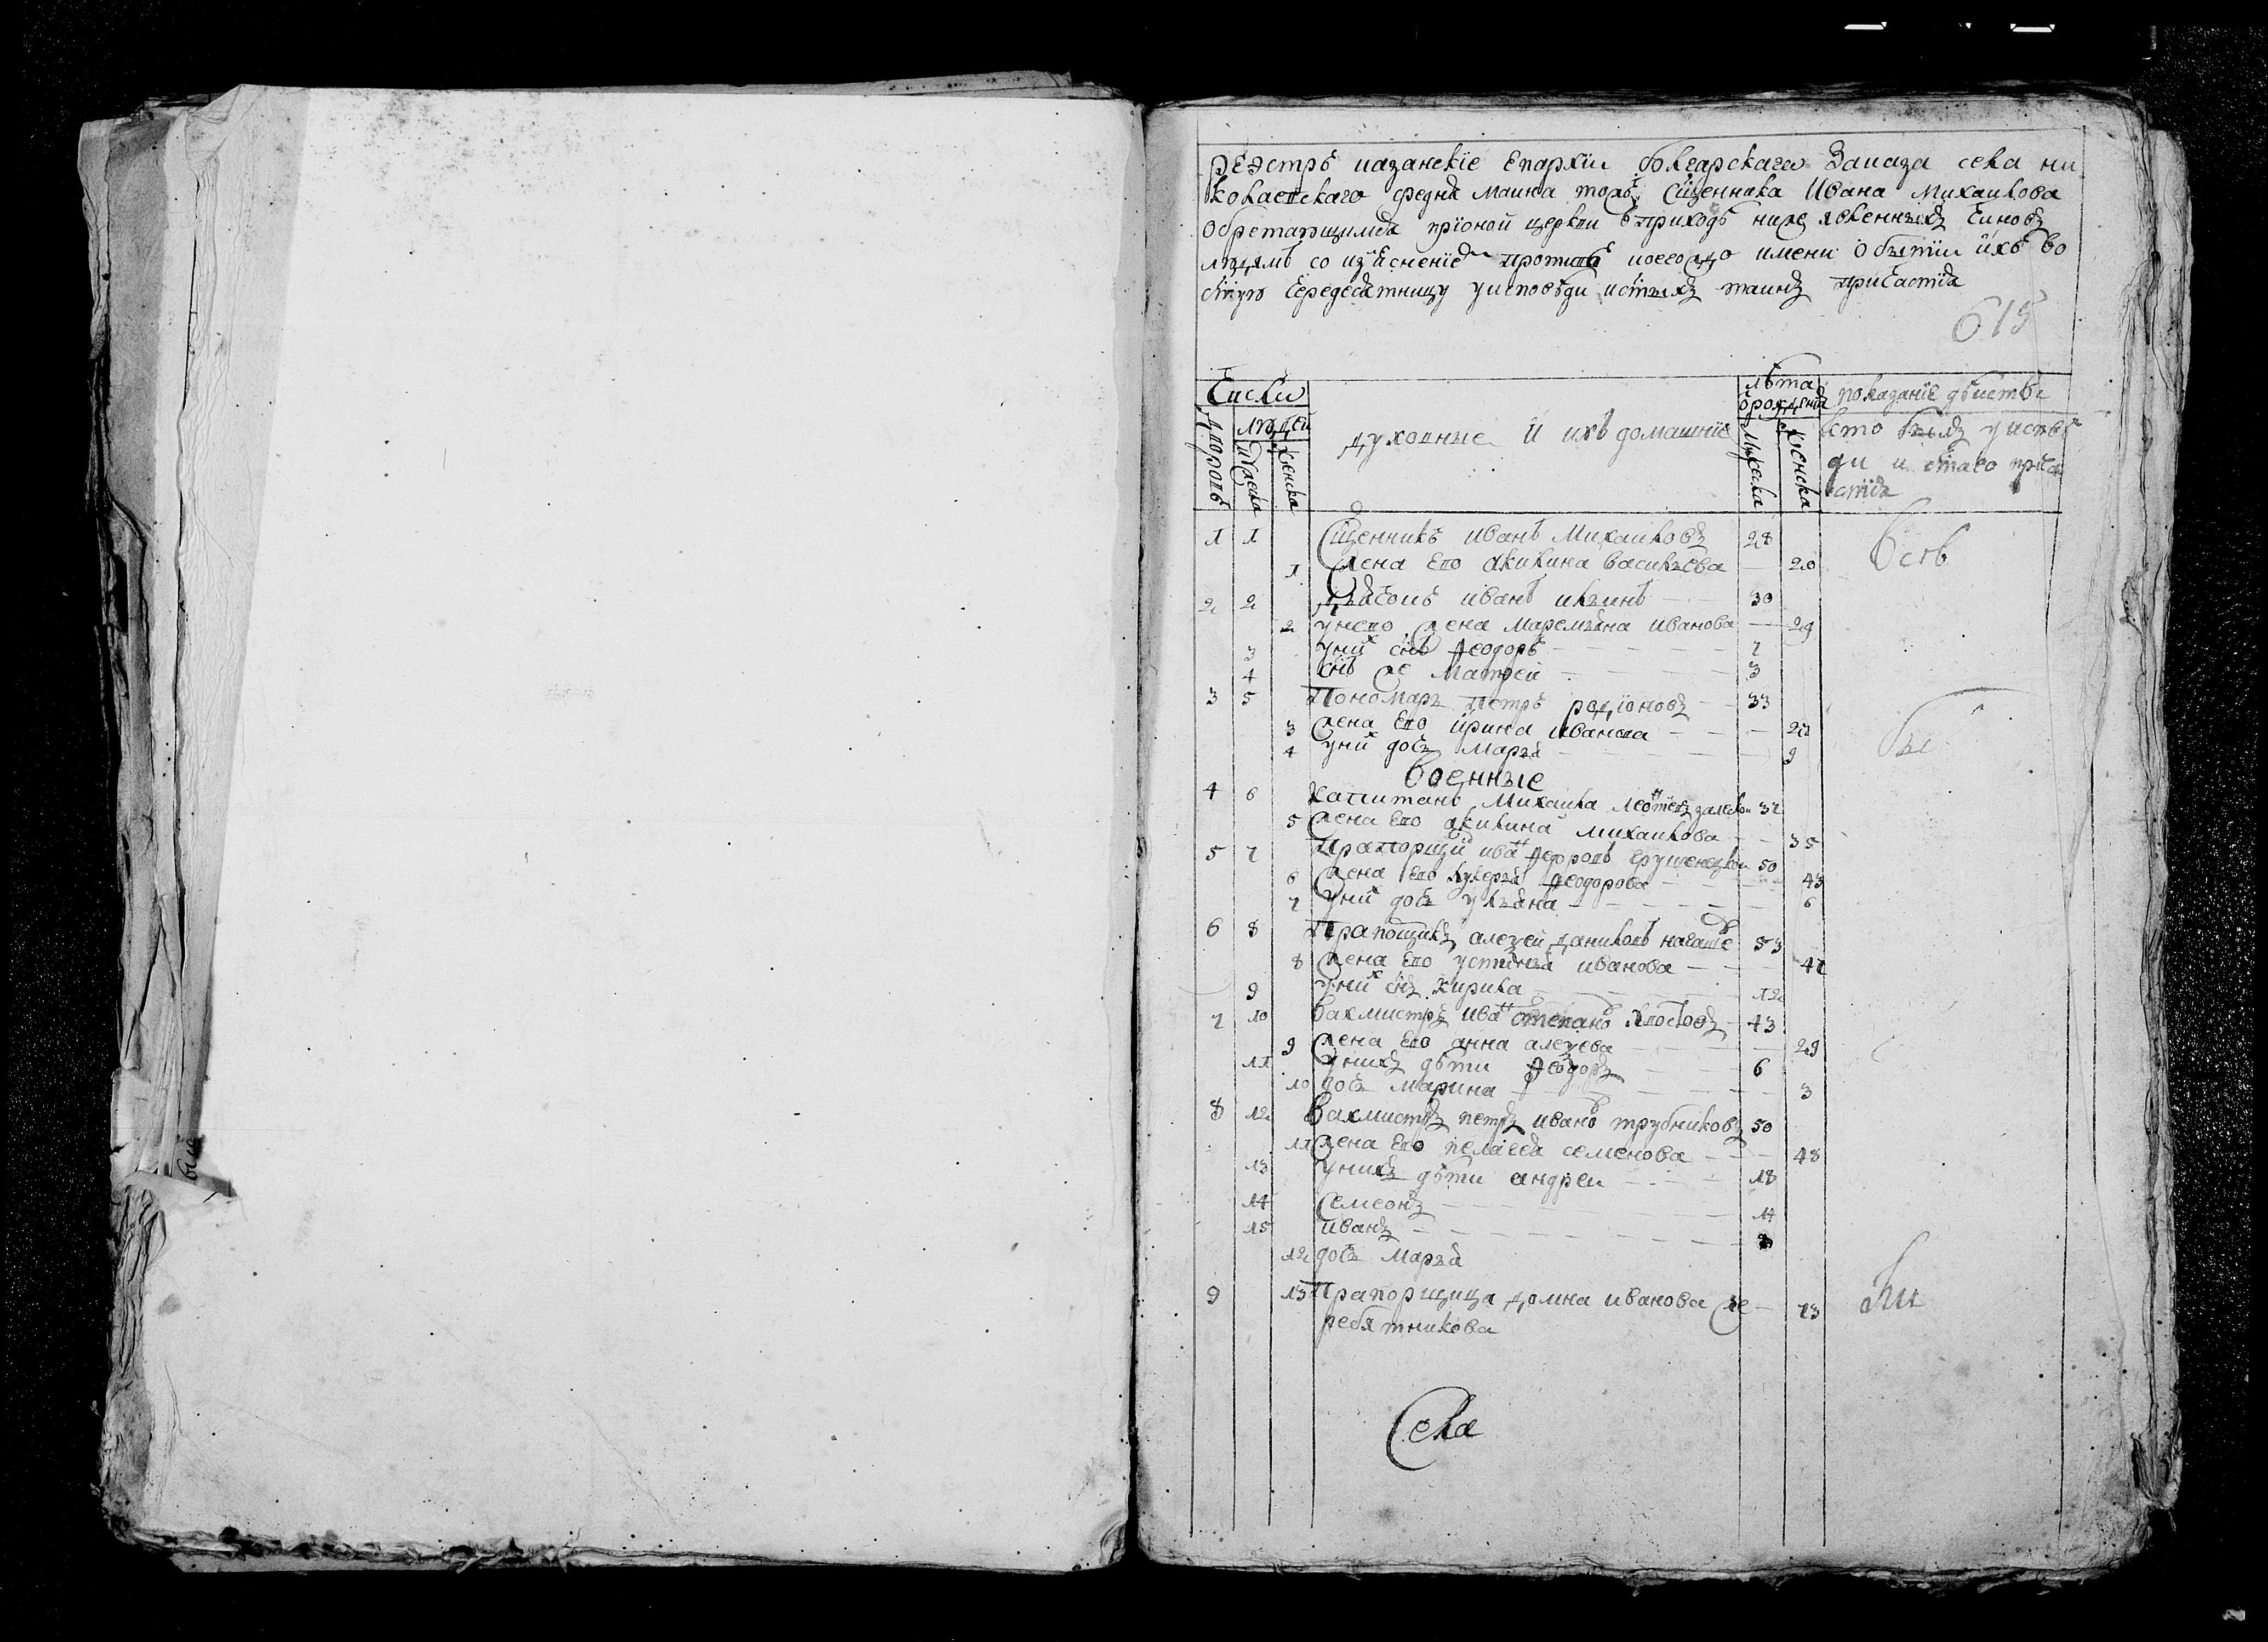 Реэстръ казанскïе Епархïи болгарскаго Заказа села ни
колаевскаго средня маина тожъ Сщенника Ивана Михаилова
обретающимся прионой церкви вприходѣ ниже явленныхъ чиновъ
людямъ со изъяснениемъ противъ коегождо имени о бытïи ихъ во
стую четыредесятницу уисповѣди истыхъ таинъ причастïя
615
Числи
людей
дворовъ
мужеска
женска
духовные и ихъ домашнïе
лѣта
ѿрождения
мужеска
женска
показанïе дѣиства
кто былъ уиспове
ди и стаго прича
стïя
1 1 Сщенникъ иванъ Михаиловъ 28
всѣ
1 жена Его акилина василъева — 20
2 2 Дьячокъ иванъ илъинъ — 30
2 унего жена маремъяна иванова — 29
3 уних снъ Феодоръ — 7
4 снъ же Матфеи — 3
3 5 Пономаръ Петръ родïоновъ — 33
3 жена Его ирина иванова — 27
бы
4 уних дочъ Маръя — 9
военные
4 6 капитанъ Михаила леонтïевъ 37
5 жена Его акилина михаилова — 35
5 7 Прапорщик иван Феодоровъ 50
6 жена Его лукеръя Феодорова — 43
7 уних дочъ улъяна — 6
6 8 Прапощикъ алезеи даниловъ 53
8 жена Его устинъя иванова — 47
9 уних снъ кирила — 12
7 10 вахмистръ иван степановъ хвостовъ 43
9 жена Его анна алезева — 29
11 унихъ дѣти Феодоръ — 6
10 дочъ марина — 3
8 12 Вахмистръ петръ ивановъ трубниковъ 50
11 жена Его пелагея семенова — 48
13 унихъ дѣти андреи — 18
14 Семеонъ — 14
15 иванъ —
12 дочъ маръя
9 13 Прапорщица домна иванова же — 73
ли
ребятникова
Села